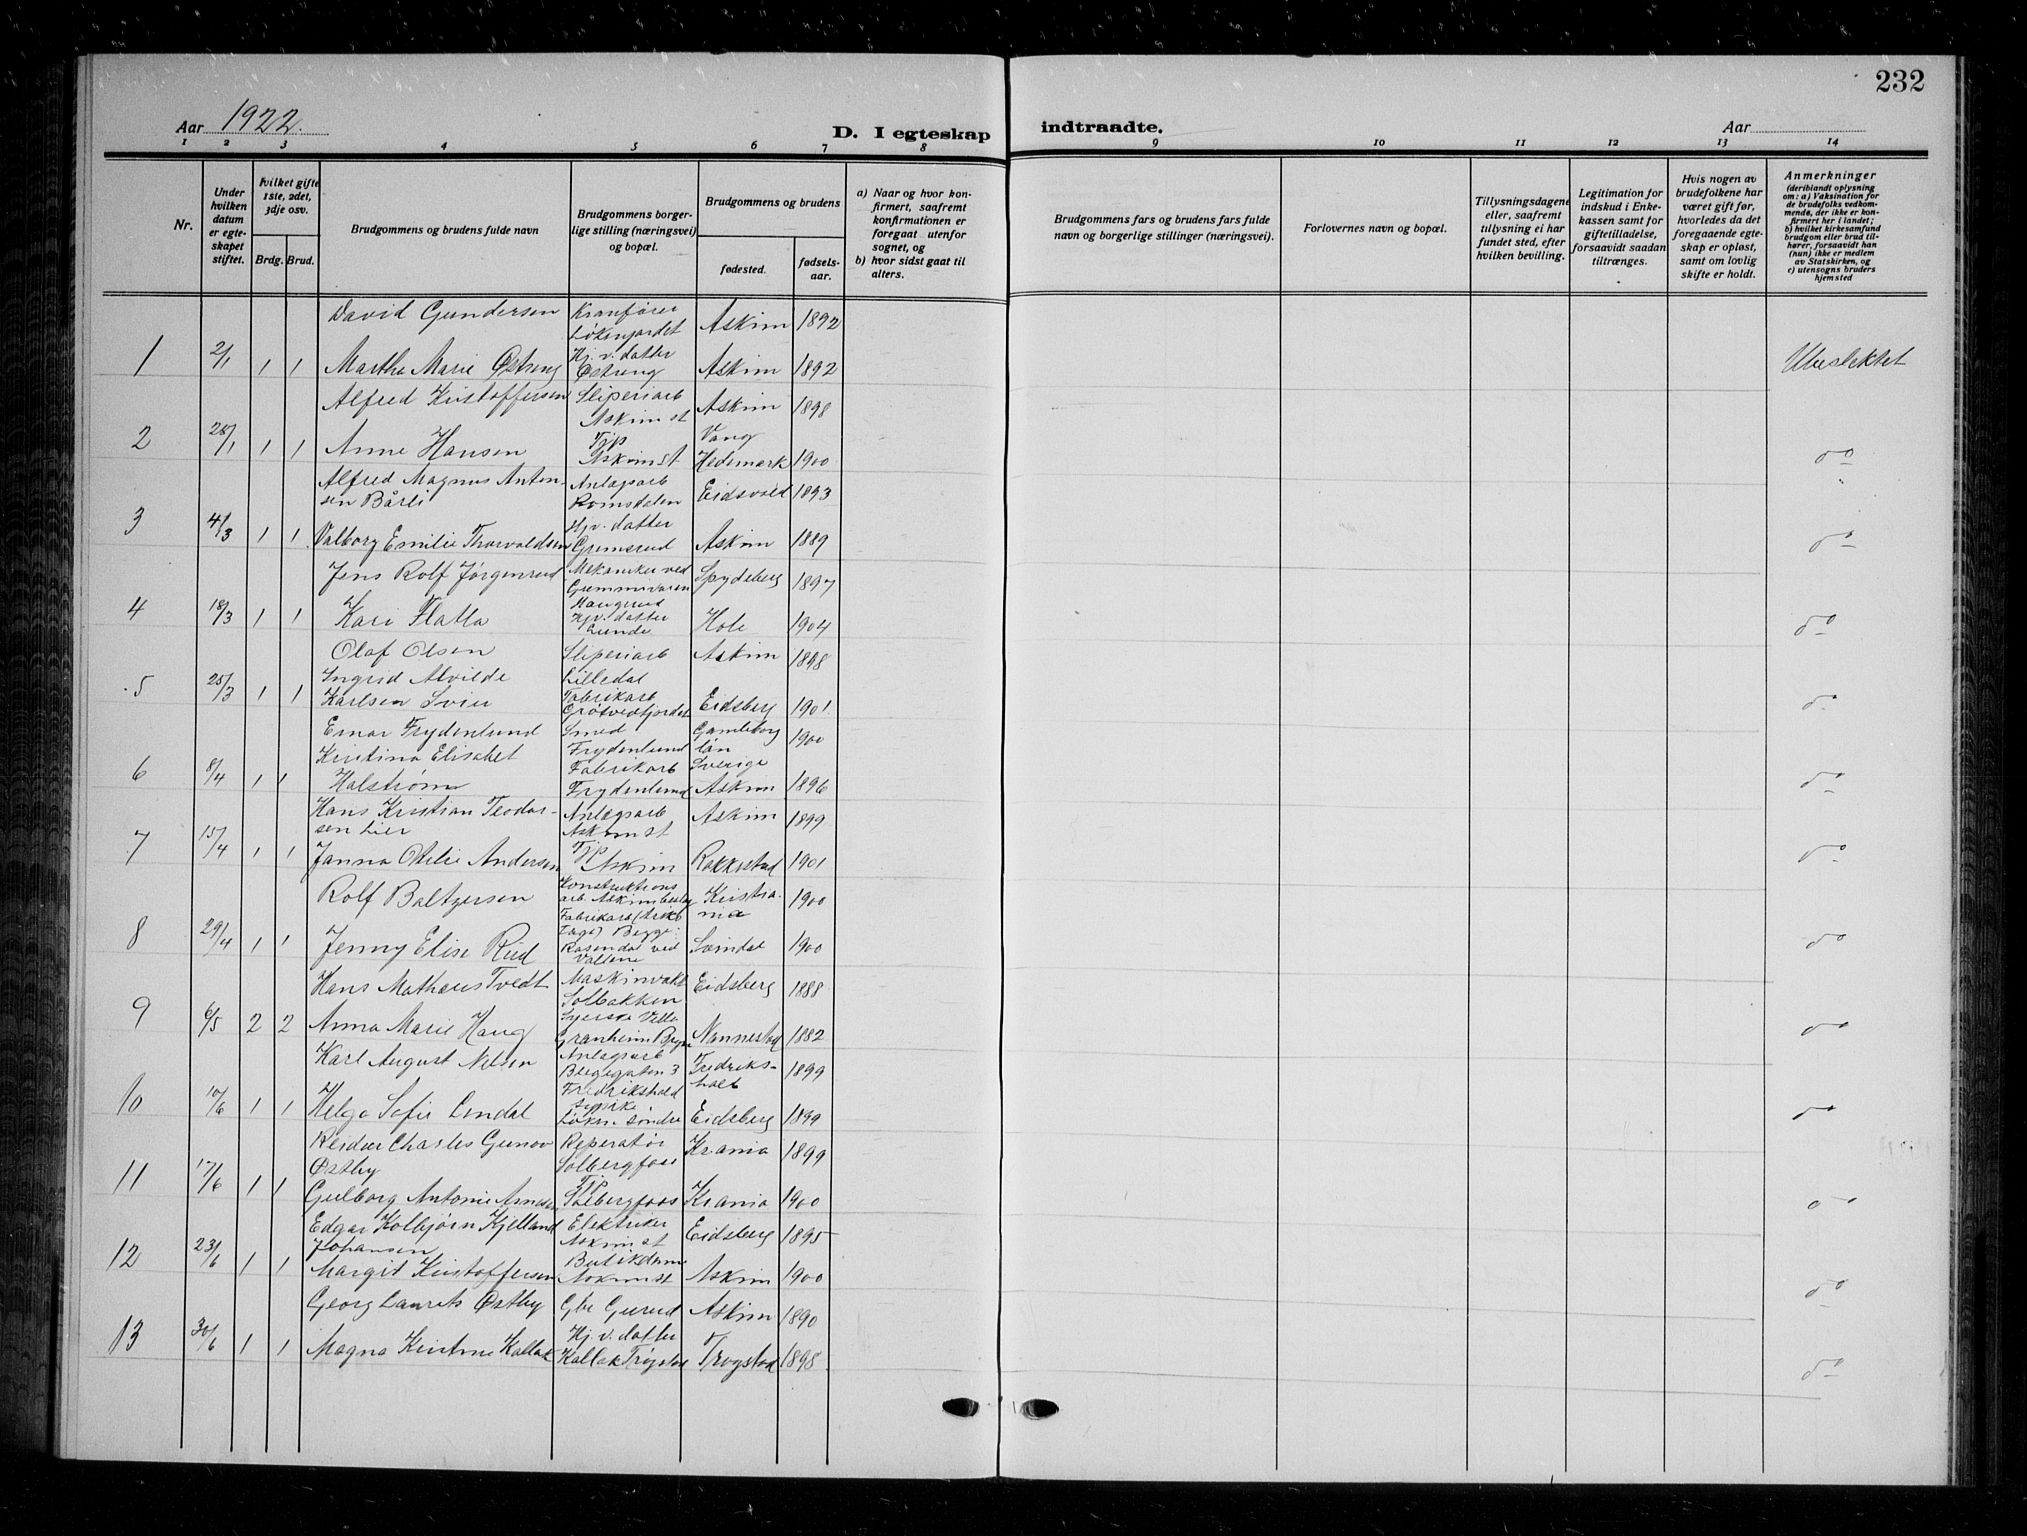 232
Aar 1922. D. I egteskap indtraadte. Aar
1 2 3 4 5 6 7 8 9 10 11 12 13 14
Nr.
Under hvilken datum er egteskapet stiftet.
Hvilket gifte 1ste, 2det, 3dje osv.
Brdg. Brud.
Brudgommens og brudens fulde navn
Brudgommens borgerlige stilling (næringsvei) og bopæl.
Brudgommens og brudens
fødested.
fødselsaar.
a) Naar og hvor konfirmert, saafremt konfirmationen er foregaat utenfor sognet, og
b) hvor sidst gaat til alters.
Brudgommens fars og brudens fars fulde navn og borgerlige stillinger (næringsvei).
Forlovernes navn og bopæl.
Tillysningsdagene eller, saafremt tillysning ei har fundet sted, efter hvilken bevilling.
Legitimation for indskud i Enkekassen samt for giftetilladelse, forsaavidt saadan tiltrænges.
Hvis nogen av brudefolkene har været gift før, hvorledes da det foregaaende egteskap er opløst, samt om lovlig skifte er holdt.
Anmerkninger (deriblandt oplysning om: a) Vaksination for de brudefolks vedkommende, der ikke er konfirmert her i landet; b) hvilket kirkesamfund brudgom eller brud tilhører, forsaavidt han (hun) ikke er medlem av Statskirken, og c) utensogns bruders hjemsted
David Gundersen Kranfører Løkengordet Askim 1892
1 2/1 1 1 Martha Marie Østreng Hj. v. datter Østreng Askim 1892 Ubeslektet
Alfred Kristoffersen Sliperiarb Askim st Askim 1898
2 28/1 1 1 Anne Hansen Tjp Askim st Vang Hedemark 1900 do
Alfred Magnus Antonsen Bårli Anlægsarb Romsdalen Eidsvold 1893
3 4/3 1 1 Valborg Emilie Thorvaldsen Hjv. datter Grimsrud Askim 1889 do
Jens Rolf Jørgenrud Mekaniker ved Gummivaren Haugrud Spydeberg 1897
4 18/3 1 1 Kari Flatla Hjv. datter Lunde Hole 1904 do
Olaf Olsen Sliperiarb Lilledal Askim 1898
5 25/3 1 1 Ingrid Alvilde Karlsen Svier Fabrikarb Grøtvedtjordet Eidsberg 1901 do
Einar Frydenlund Smed Frydenlund Gøteborg län Sverige 1900
6 8/4 1 1 Kristina Elisabet Halstrøm Fabrikarb Frydenlund Askim 1896 do
Hans Kristian Teodorsen Lier Anlægsarb Askim st Askim 1899
7 15/4 1 1 Janna Otilie Andersen Tjp Askim Rakkestad 1901 do
Rolf Baltzersen Konstruktionsarb. Kristiania 1900
8 29/4 1 1 Jenny Elise Rud Fabrikarb Begge: Rosendal ved Svindal 1900 do
Hans Matheus Tvedt Maskinvakt Solbakken Eidsberg 1888
9 6/5 2 2 Anna Marie Haug Syerske Villa Granheim Nannestad 1882 do
Karl August Nilsen Anlægsarb 3 Fredrikshald Fredrikshald 1899
10 10/6 1 1 Helga Sofie Lindal Løken søndre Eidsberg 1899 do
Reidar Charles Gunov Østby Reperatør Solbergfoss Krania 1899
11 17/6 1 1 Gulborg Antonie Arnesen Tjp Solbergfoss Krania 1900 do
Edgar Kolbjørn Kjelland Johansen Elektriker Askim st Eidsberg 1895
12 23/6 1 1 Margit Kristoffersen Butikdame Askim st Askim 1900 do
Georg Laurits Østby Gbr Gurud Askim 1890
13 30/6 1 1 Magna Kristine Kallak Hj. v. datter Kallak Trøgstad Trøgstad 1898 do